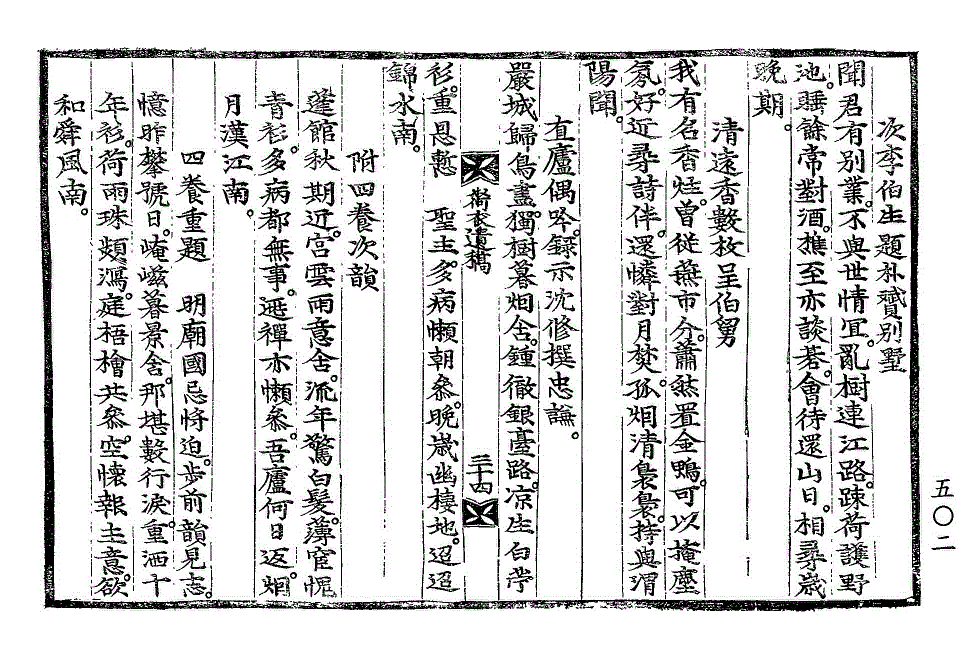 次李伯生題朴贇別墅
聞君有別業。不與世情宜。亂樹連江路。踈荷護野
池。睡餘常對酒。樵至亦談棊。會待還山日。相尋歲
晚期。
清遠香數枚呈伯舅
我有名香炷。曾從燕市分。蕭然置金鴨。可以掩塵
氛。好近尋詩伴。還憐對月焚。孤烟清裊裊。持與渭
陽聞。
直廬偶吟。錄示沈修撰忠謙。
嚴城歸鳥盡。獨樹暮烟含。鍾徹銀臺路。凉生白苧
衫。重恩慙 聖主。多病懶朝叅。晩歲幽棲地。迢迢
錦水南。
荷衣遺稿
三十四
附四養次韻
蓬館秋期近。宮雲雨意含。流年驚白髮。薄宦愧
青衫。多病都無事。逃禪亦懶叅。吾廬何日返。烟
月漢江南。
四養重題 明廟國忌將迫。步前韻見志。
憶昨攀號日。崦嵫暮景含。那堪數行淚。重洒十
年衫。荷雨珠頻瀉。庭梧檜共叅。空懷報主意。欲
和舜風南。
五〇二